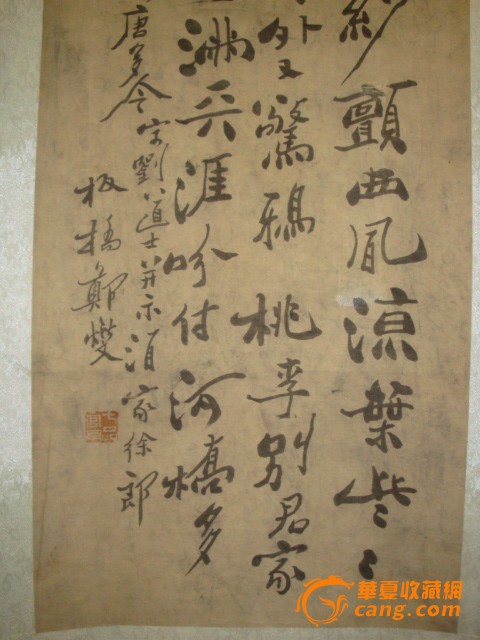 紗顫西風涼葉些々
外又驚鴉桃李別君家
滿天涯吩付河橋多
唐多令寄劉道士并示酒家徐郎
板橋鄭燮
華夏收藏網
cang.com